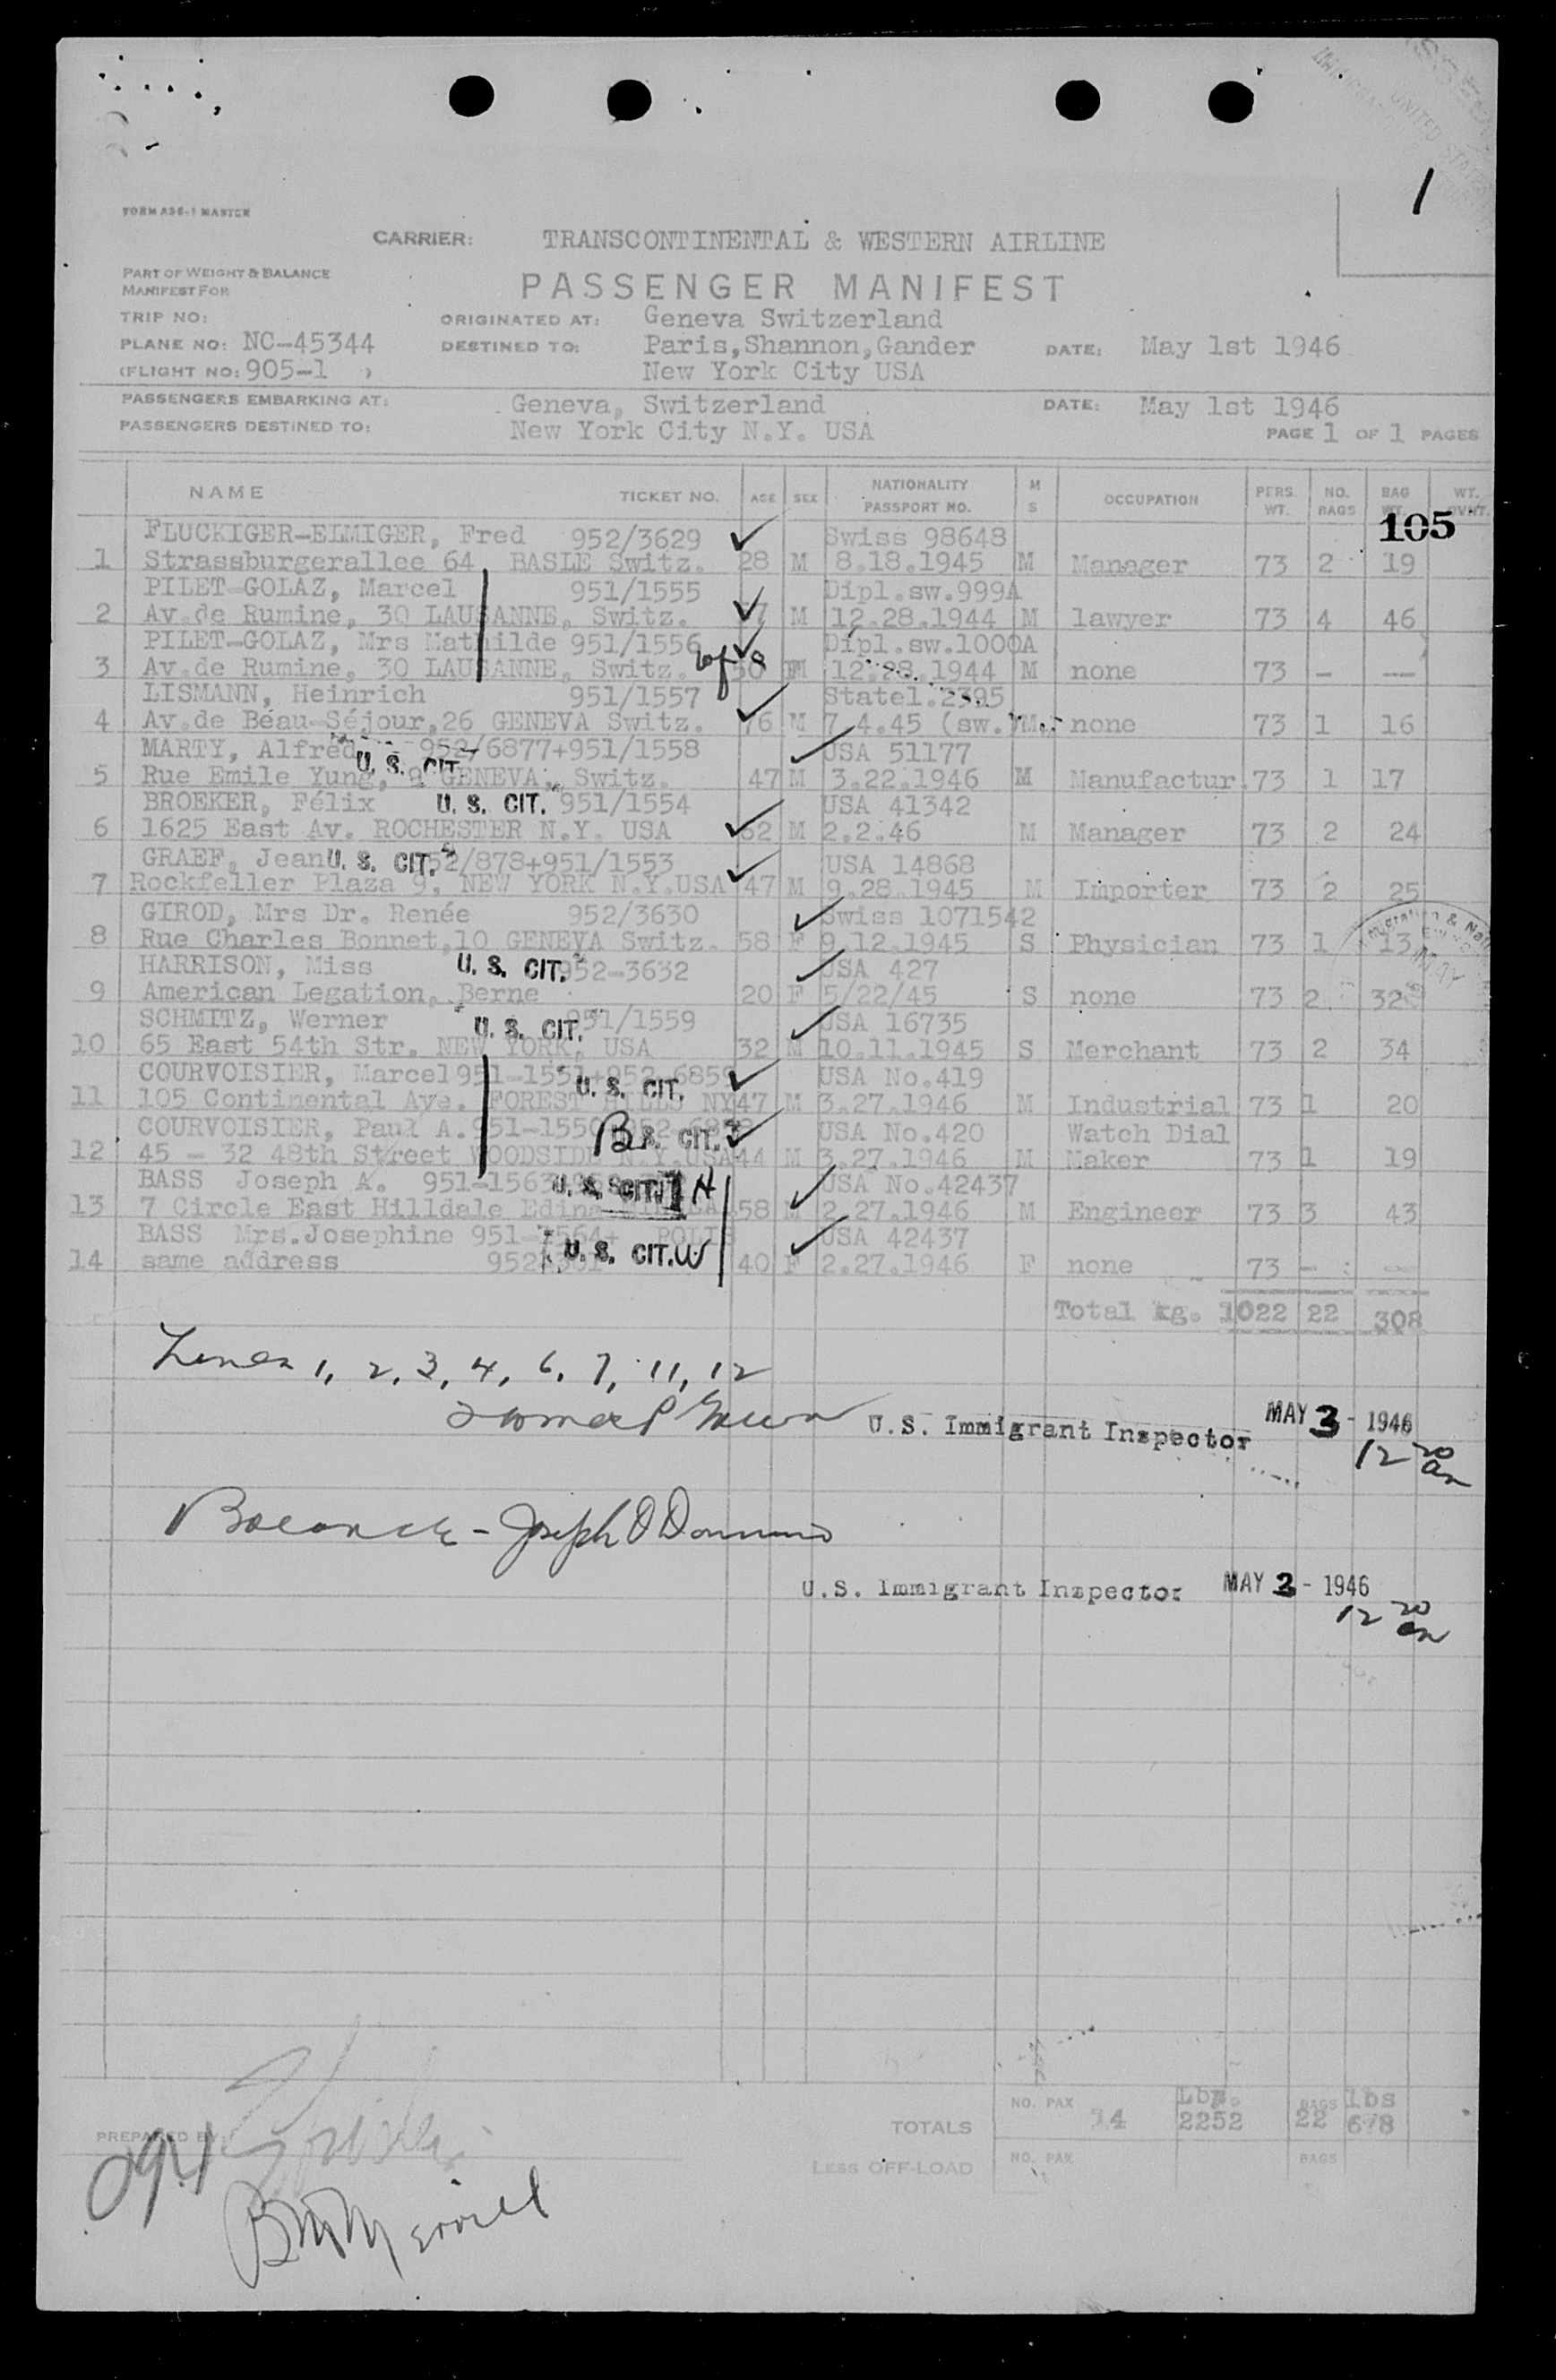 1
FORM A36-1 MASTER
CARRIER: TRANSCONTINENTAL & WESTERN AIRLINE
PART OF WEIGHT & BALANCE
MANIFEST FOR
PASSENGER MANIFEST
TRIP NO: ORIGINATED AT: Geneva Switzerland
PLANE NO: NC-45344 DESTINED TO: Paris,Shannon,Gander DATE: May 1st 1946
(FLIGHT NO: 905-1 ) New York City USA
PASSENGERS EMBARKING AT: Geneva, Switzerland DATE: May 1st 1946
PASSENGERS DESTINED TO: New York City N.Y. USA PAGE 1 OF 1 PAGES
NAME TICKET NO. AGE SEX NATIONALITY PASSPORT NO. M S OCCUPATION PERS. WT. NO. BAGS BAG WT.
105
FLUCKIGER-ELMIGER, Fred 952/3629 Swiss 98648
1 Strassburgerallee 64, BASLE Switz. 28 M 8.18.1945 M Manager 73 2 19
PILET-GOLAZ, Marcel 951/1555 Dipl.sw.999A
2 Av.de Rumine, 30 LAUSANNE, Switz. M 12.28.1944 M lawyer 73 4 46
PILET-GOLAZ, Mrs Mathilde 951/1556 Dipl.sw.1000A
3 Av.de Rumine, 30 LAUSANNE, Switz. 12.28.1944 M none 73 - --
LISMANN, Heinrich 951/1557 Statel.2395
4 Av.de Béau-Séjour,26 GENEVA Switz. 76 M 7.4.45 (sw.) M none 73 1 16
MARTY, Alfred 952/6877+951/1558 USA 51177
U. S. CIT.
5 Rue Emile Yung, 9 GENEVA, Switz. 47 M 3.22.1946 M Manufactur. 73 1 17
BROEKER, Félix U. S. CIT. 951/1554 USA 41342
6 1625 East Av. ROCHESTER N.Y. USA 52 M 2.2.46 M Manager 73 2 24
GRAEF, Jean U. S. CIT. 952/878+951/1553 USA 14868
7 Rockfeller Plaza 9, NEW YORK N.Y.USA 47 M 9.28.1945 M Importer 73 2 25
GIROD, Mrs Dr. Renée 952/3630 Swiss 1071542
8 Rue Charles Bonnet,10 GENEVA Switz. 58 F 9.12.1945 S Physician 73 1 13
HARRISON, Miss U. S. CIT. 952-3632 USA 427
9 American Legation, Berne 20 F 5/22/45 S none 73 2 32
SCHMITZ, Werner U. S. CIT. 951/1559 USA 16735
10 65 East 54th Str. NEW YORK, USA 32 M 10.11.1945 S Merchant 73 2 34
COURVOISIER, Marcel 951-1551+952-6859 USA No.419
U. S. CIT.
11 105 Continental Ave. FOREST HILLS NY 47 M 3.27.1946 M Industrial 73 1 20
COURVOISIER, Paul A. 951-1550 USA No.420 Watch Dial
S. CIT.
12 45 - 32 48th Street WOODSIDE N.Y.USA 44 M 3.27.1946 M Maker 73 1 19
BASS Joseph A. 951-1563 U. S. CIT. H USA No.42437
13 7 Circle East Hilldale Edina 58 M 2.27.1946 M Engineer 73 3 43
BASS Mrs.Josephine 951-1564+ POLIS USA 42437
U. S. CIT. W
14 same address 40 F 2.27.1946 F none 73 - --
Total kg. 1022 22 308
Lines 1, 2, 3, 4, 6, 7, 11, 12
U.S. Immigrant Inspector MAY 3 - 1946
12 20 am
Balance - Joseph
U.S. Immigrant Inspector MAY 3 - 1946
12 20 am
PREPARED BY:
TOTALS NO. PAX 14 Lbs. 2252 BAGS 22 lbs 678
LESS OFF-LOAD NO. PAX BAGS